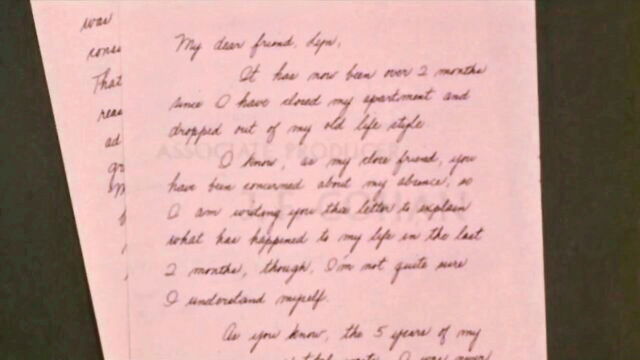 was
That
ad
My dear friend, Lyn,
It has now been over 2 months
since I have closed my apartment and
dropped out of my old life style
ASSOCIATE PRODUCER
I know, as my close friend, you
have been concerned about my absence, so
I am writing you this letter to explain
what has happened to my life in the last
2 months, though, I'm not quite sure
I understand myself.
As you know, the 5 years of my